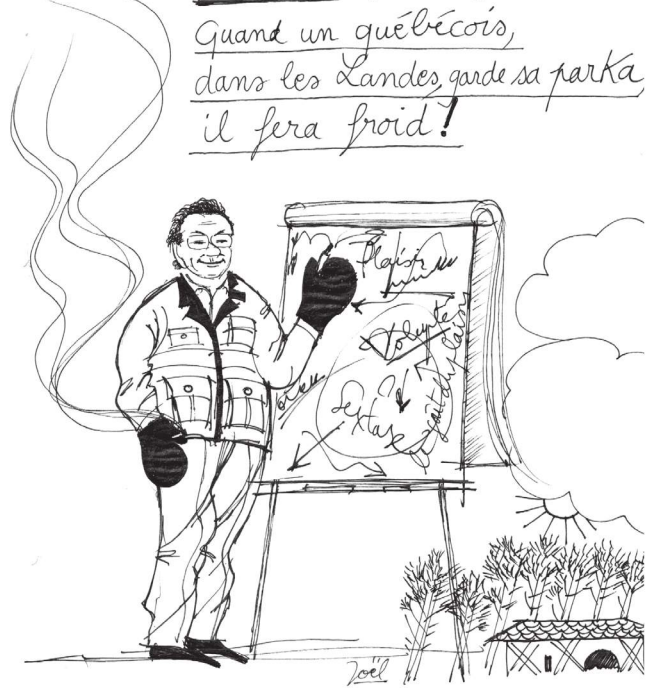 Quand un québécois,
dans les Landes, garde sa parka,
il fera froid !
Plaisir
Volupté
extase
Joël